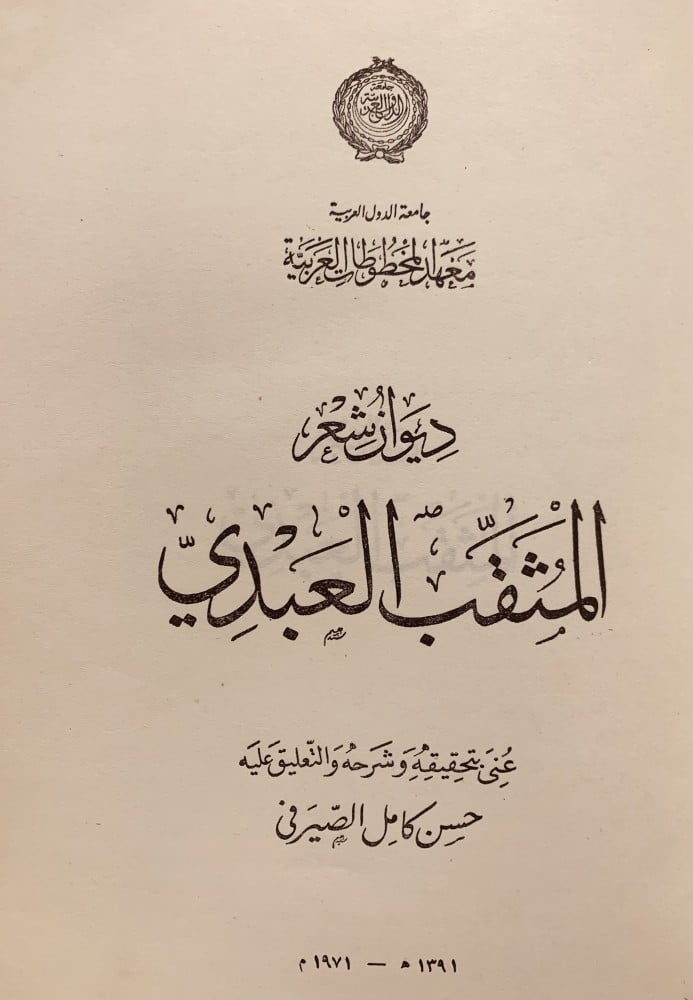 جامعة
الدول العربية
جامعة الدول العربية
مَعْهَد المخَطُوطَاتِ العَرَبَيَّة
دِيوَان شِعْر
المُثَقَّبِ العَبْدِيّ
عُنِىَ بتحقِيقِهِ وَشَرحهُ وَالتّعليق عَليه
حسن كامِل الصّيرَفى
١٣٩١ ه – ١٩٧١ م